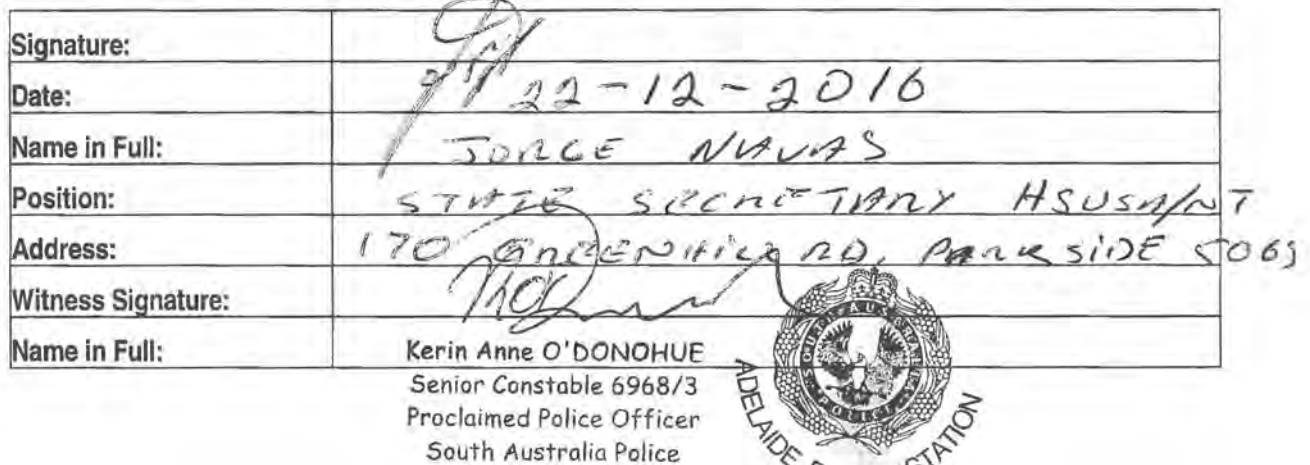 Signature:
Date: 22-12-2016
Name in Full: JORGE NAVAS
Position: STATE SECRETARY HSUSA/NT
Address: 170 GREENHILL RD, PARKSIDE 5063
Witness Signature:
Name in Full: Kerin Anne O'DONOHUE
Senior Constable 6968/3
Proclaimed Police Officer
South Australia Police
SOUTH AUSTRALIA
POLICE
ADELAIDE STATION